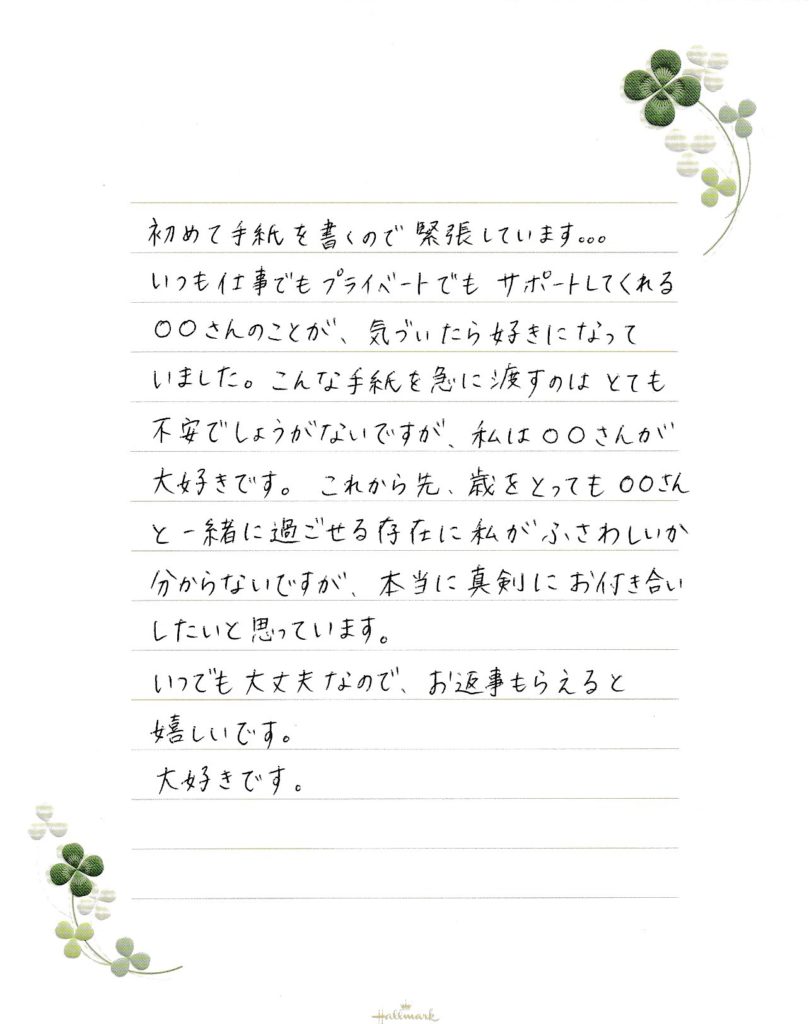 初めて手紙を書くので緊張しています...
いつも仕事でもプライベートでも サポートしてくれる
〇〇さんのことが、気づいたら好きになって
いました。こんな手紙を急に渡すのは とても
不安でしょうがないですが、私は〇〇さんが
大好きです。 これから先、歳をとっても〇〇さん
と一緒に過ごせる存在に私がふさわしいか
分からないですが、本当に真剣にお付き合い
したいと思っています。
いつでも大丈夫なので、お返事もらえると
嬉しいです。
大好きです。
Hallmark